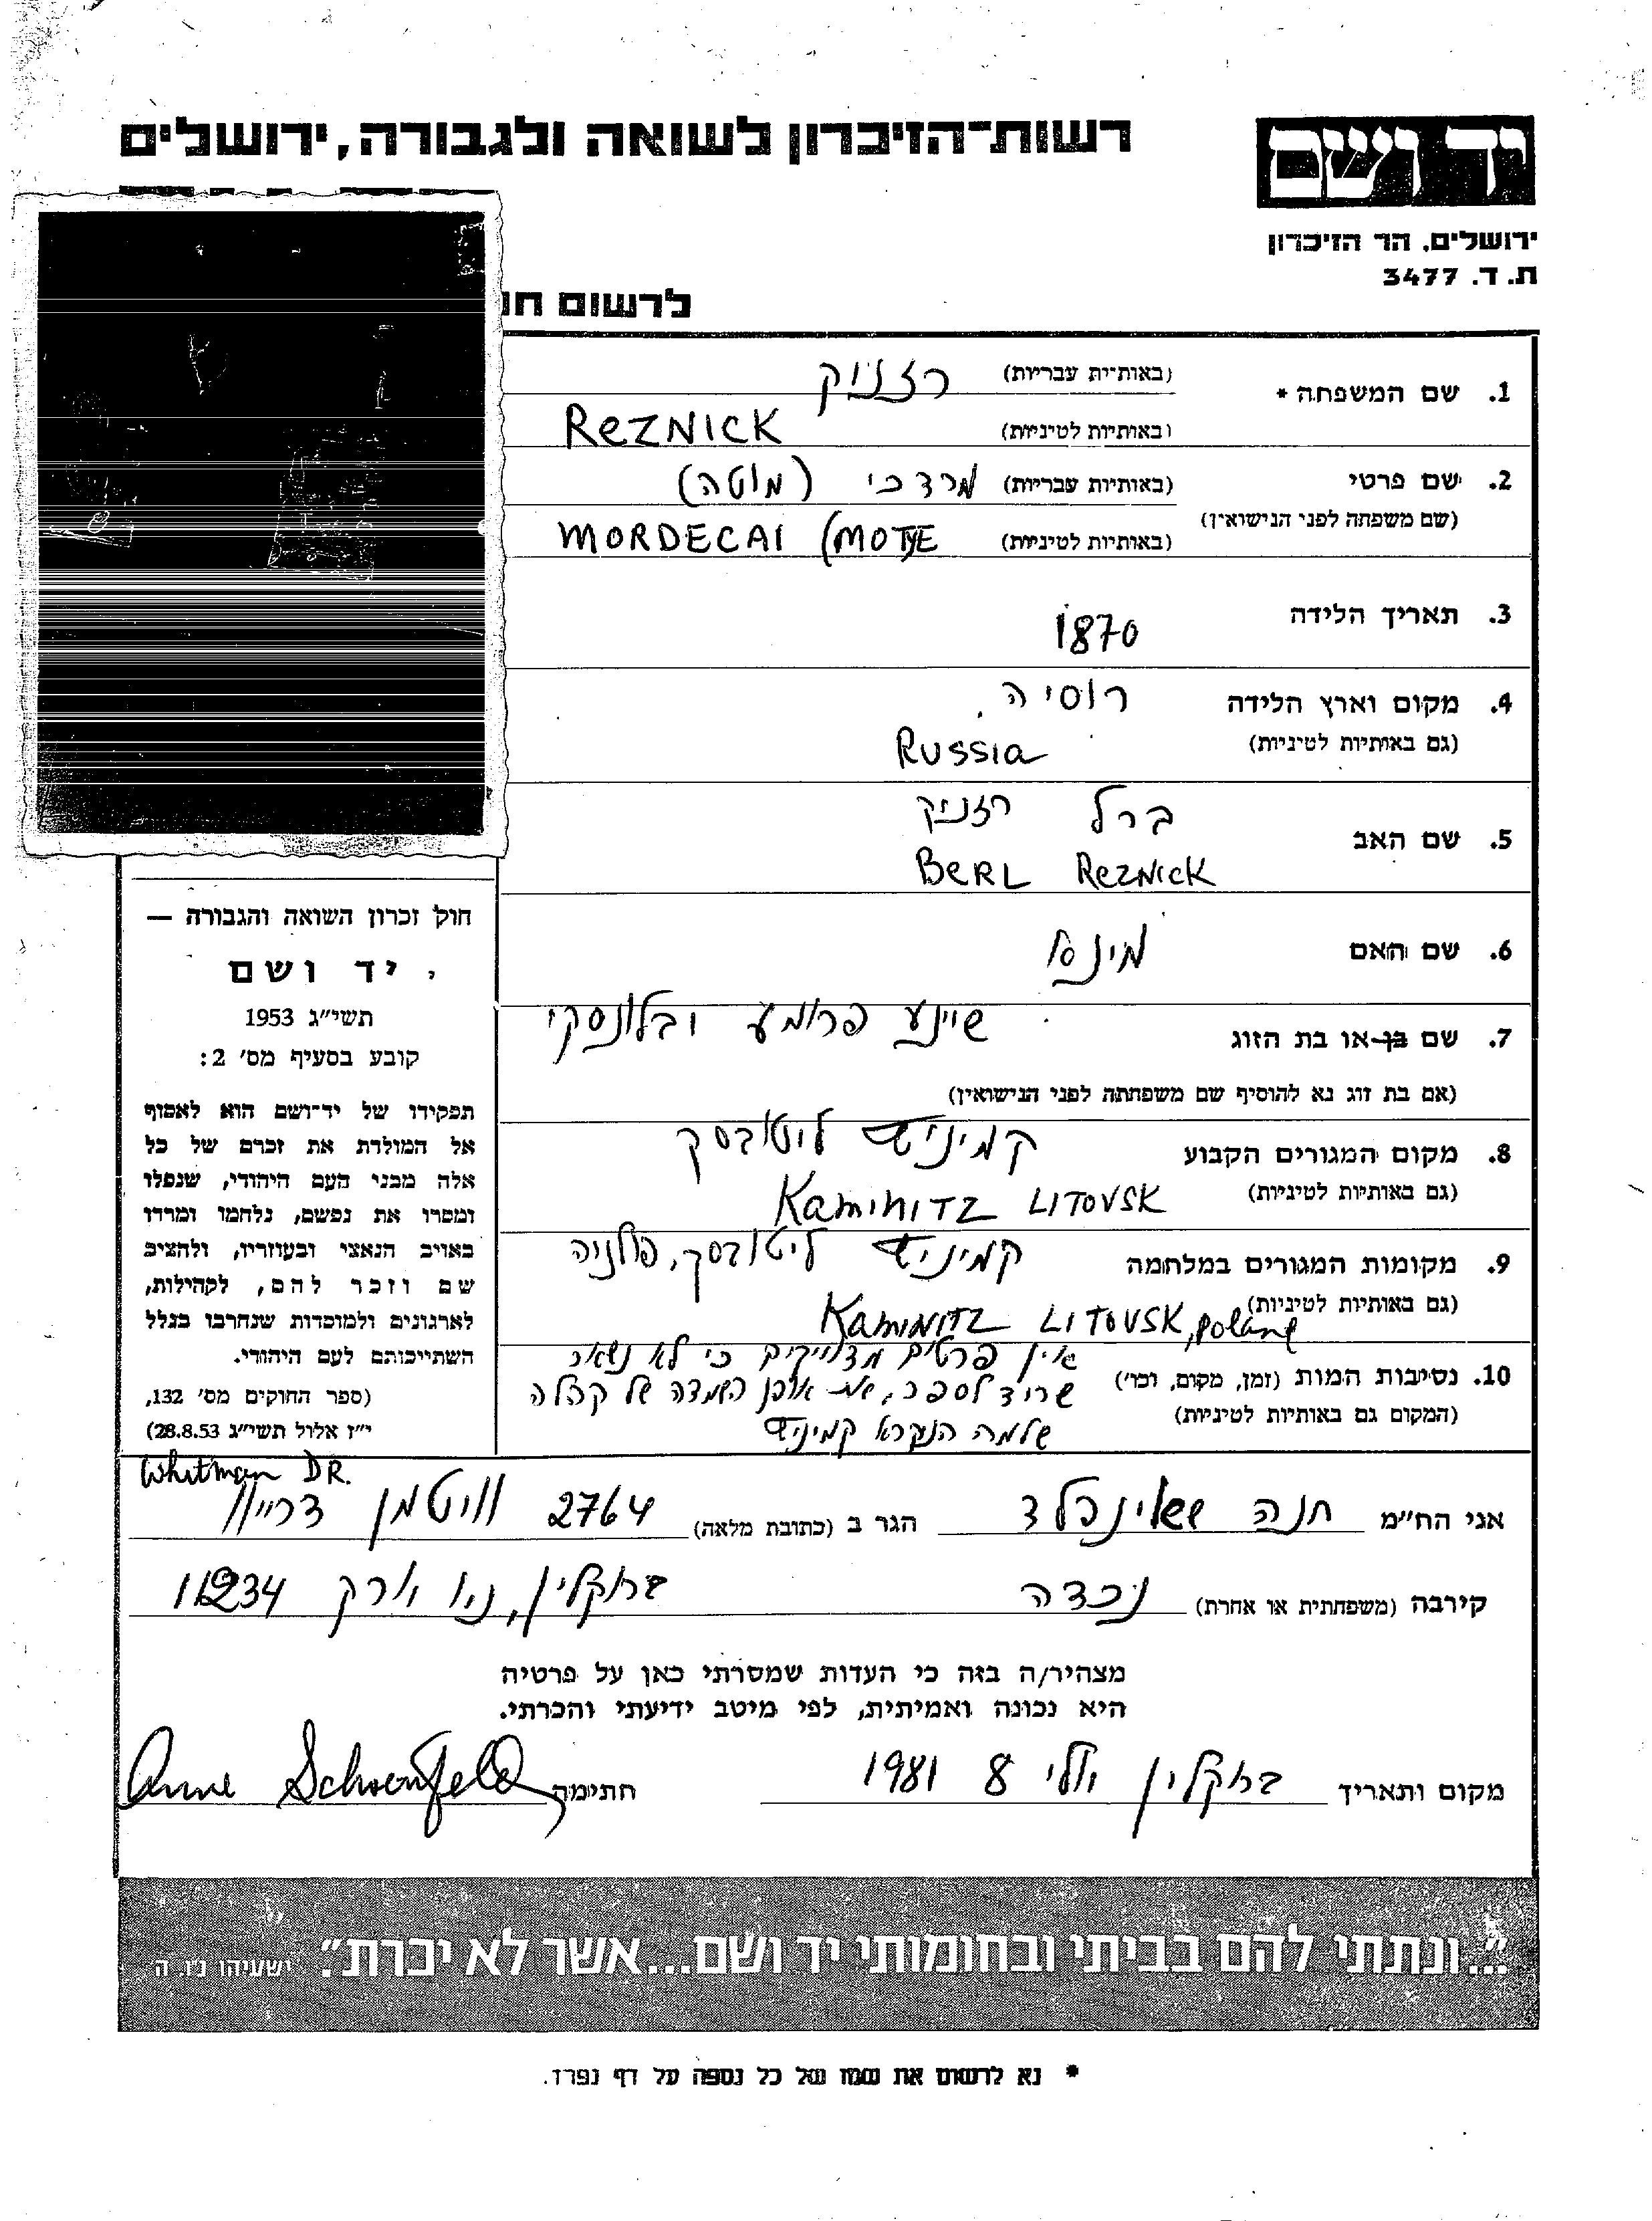 רשות־הזיכרון לשואה ולגבורה, ירושלים
יד ושם
ירושלים, הר הזיכרון
ת.ד. 3477
לרשום
1. שם המשפחה * (באותיות עבריות) רזניק
(באותיות לטיניות) REZNICK
2. שם פרטי (באותיות עבריות) מרדכי (מוטה)
(שם משפחה לפני הנישואין) (באותיות לטיניות) MORDECAI (MOTE
3. תאריך הלידה 1870
4. מקום וארץ הלידה רוסיה
(גם באותיות לטיניות) Russia
5. שם האב ברל רזניק
BERL REZNICK
6. שם האם
7. שם בן-או בת הזוג שיינע פרומע
(אם בת זוג נא להוסיף שם משפחתה לפני הנישואין)
8. מקום המגורים הקבוע קמיניץ ליטובסק
(גם באותיות לטיניות) Kaminitz LITOVSK
9. מקומות המגורים במלחמה קמיניץ ליטובסק, פולניה
(גם באותיות לטיניות) Kaminitz LITOVSK, Poland
10. נסיבות המות (זמן, מקום, וכו') אין פרטים מדוייקים כי לא נשאר
(המקום גם באותיות לטיניות) שריד לספר, את אופן השמדה של קהלה
שלמה הנקרא קמיניץ
חוק זכרון השואה והגבורה —
יד ושם
תשי״ג 1953
קובע בסעיף מס׳ 2:
תפקידו של יד־ושם הוא לאסוף
אל המולדת את זכרם של כל
אלה מבני העם היהודי, שנפלו
ומסרו את נפשם, נלחמו ומרדו
באויב הנאצי ובעוזריו, ולהציב
שם וזכר להם, לקהילות,
לארגונים ולמוסדות שנחרבו בגלל
השתייכותם לעם היהודי.
(ספר החוקים מס׳ 132,
י״ז אלול תשי״ג 28.8.53)
Whitman DR.
אני הח״מ חנה שאינפלד הגר ב (כתובת מלאה) 2764 וויטמן דרייוו
קירבה (משפחתית או אחרת) נכדה ברוקלין, ניו יורק 11234
מצהיר/ה בזה כי העדות שמסרתי כאן על פרטיה
היא נכונה ואמיתית, לפי מיטב ידיעתי והכרתי.
מקום ותאריך ברוקלין יולי 8 1981 חתימה Anne Schoenfeld
״...ונתתי להם בביתי ובחומותי יד ושם...אשר לא יכרת״. ישעיהו נ״ו, ה
* נא לרשום את שמו של כל נספה על דף נפרד.